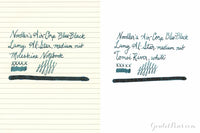 Noodler's Air-Corp Blue Black
Lamy Al-Star, medium nib
Moleskine Notebook
xxxxx
Noodler's Air-Corp Blue Black
Lamy Al-Star, medium nib
Tomoe River, white
xxxxx